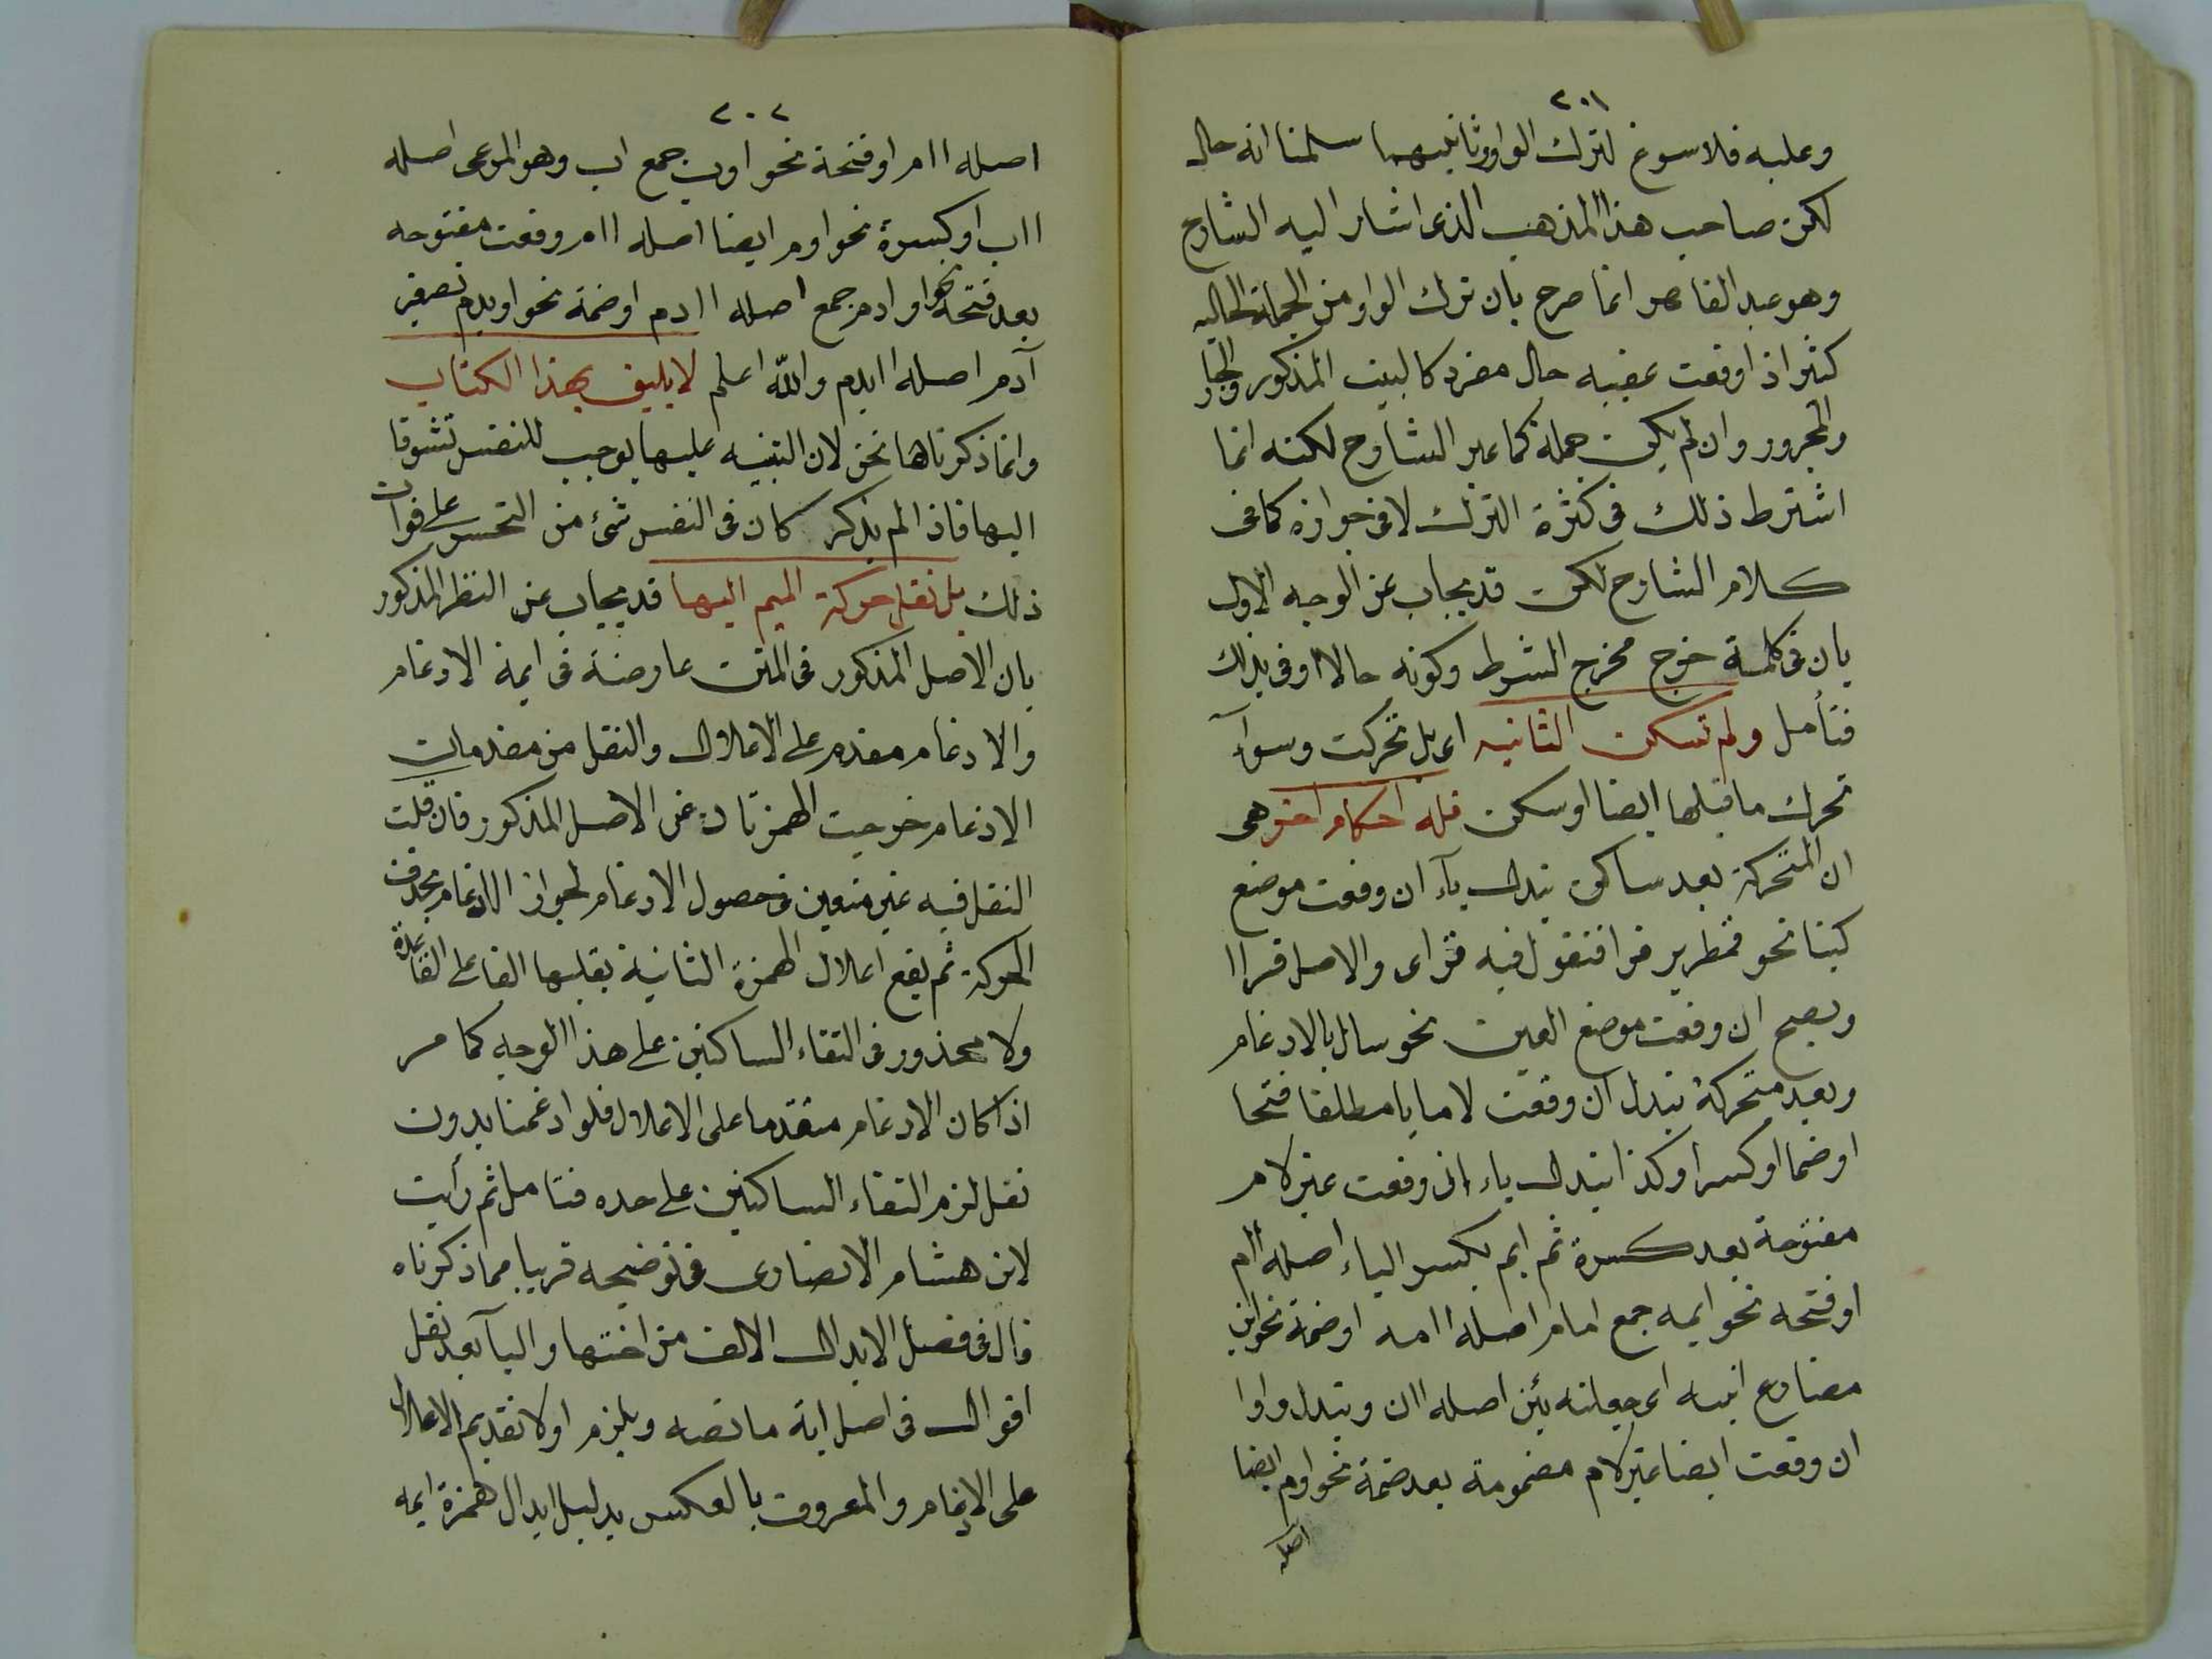 ٢٠١
وعليه فلا سوغ لترك الواو وثانيهما سلمنا انه حال
لكن صاحب هذا المذهب الذى اشار اليه الشارح
وهو عبد القاهر انما صرح بان ترك الواو من الجملة الحاليه
كثير اذا وقعت عقيبه حال مفرد كالبيت المذكور والجار
والمجرور وان لم يكن جملة كما عبر الشارح لكنه انما
اشترط ذلك فى كثرة الترك لا فى جوازه كما فى
كلام الشارح لكن قد يجاب عن الوجه الاول
بان فى كلمة خرج مخرج الشرط وكونه حالا اوفى بذلك
فتأمل ولم تسكن الثانيه اى بل تحركت وسوآء
تحرك ما قبلها ايضا او سكن فله احكام اخر هى
ان المتحركة بعد ساكن تبدل يآء ان وقعت موضع
كبنا نحو قمطرير قرا فتقول فيه قراى والاصل قراا
ويصح ان وقعت موضع العين نحو سال بالادغام
وبعد متحركة تبدل ان وقعت لاما يا مطلقا فتحا
او ضما او كسرا وكذا تبدل ياء ان وقعت غير لام
مفتوحة بعد كسرة ثم ايم بكسر الياء اصله اام
او فتحه نحو ايمه جمع امام اصله اامه او ضمة نحو اين
مضارع انيته اى جعلته يئن اصله اان وتبدل واوا
ان وقعت ايضا غير لام مضمومة بعد ضمة نحو اوم ايضا
اصله
٢٠٢
اصله اام او فتحة نحو اوب جمع اب وهو المرعى اصله
ااب او كسرة نحو اوم ايضا اصله اام وقعت مفتوحه
بعد فتحة نحو اوادم جمع اصله اادم او ضمة نحو اويدم تصغير
آدم اصله اايدم والله اعلم لا يليق بهذا الكتاب
وانما ذكرناها نحن لان التنبيه عليها يوجب للنفس تشوقا
اليها فاذا لم يذكر كان فى النفس شئ من التحسر على فوات
ذلك بل نقل حركة الميم اليها قد يجاب عن النظر المذكور
بان الاصل المذكور فى المتن عارضة فى ايمة الادغام
والادغام مقدم على الاعلال والنقل من مقدمات
الادغام خرجت الهمزتان عن الاصل المذكور فان قلت
النقل فيه غير متعين فى حصول الادغام لجواز الادغام بحذف
الحركة ثم يقع اعلال الهمزة الثانية بقلبها الفا على القاعدة
ولا محذور فى التقاء الساكنين على هذا الوجه كما مر
اذا كان الادغام متقدما على الاعلال فلو ادغمنا بدون
نقل لزم التقاء الساكنين على حده فتامل ثم رأيت
لابن هشام الانصارى فى توضيحه قريبا مما ذكرناه
قال فى فصل الابدال الالف من اختها واليآ بعد نقل
اقوال فى اصل اية ما نصه ويلزم اولا تقديم الاعلال
على الادغام والمعروف بالعكس بدليل ابدال همزة ايمه